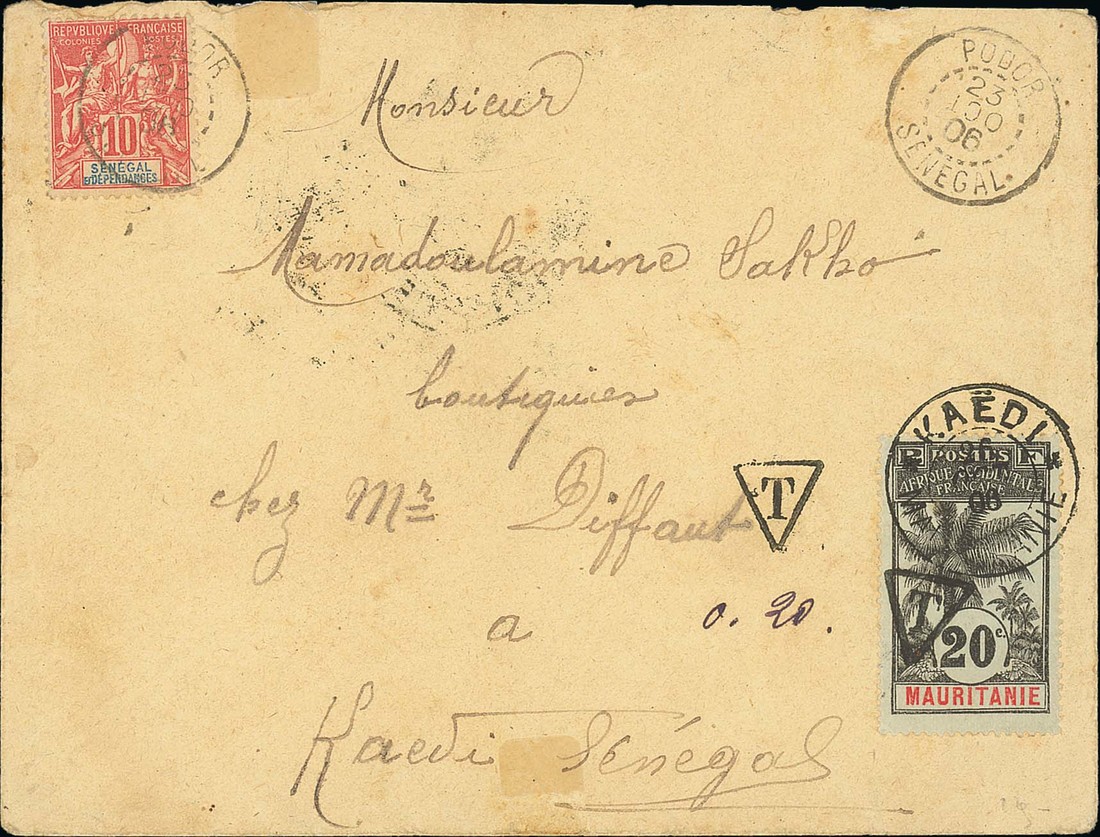 REPVBLIQVE FRANÇAISE
COLONIES POSTES
10c
SÉNÉGAL
& DÉPENDANCES
PODOR
23
AOU
06
SÉNÉGAL
Monsieur
Mamadoulamine Sakho
boutiquier
chez Mr Diffaut
T
0.20.
a
Kaedi Sénégal
KAËDI
26
06
MAURITANIE
POSTES
AFRIQUE OCCIDENTALE
FRANÇAISE
T
20c.
MAURITANIE